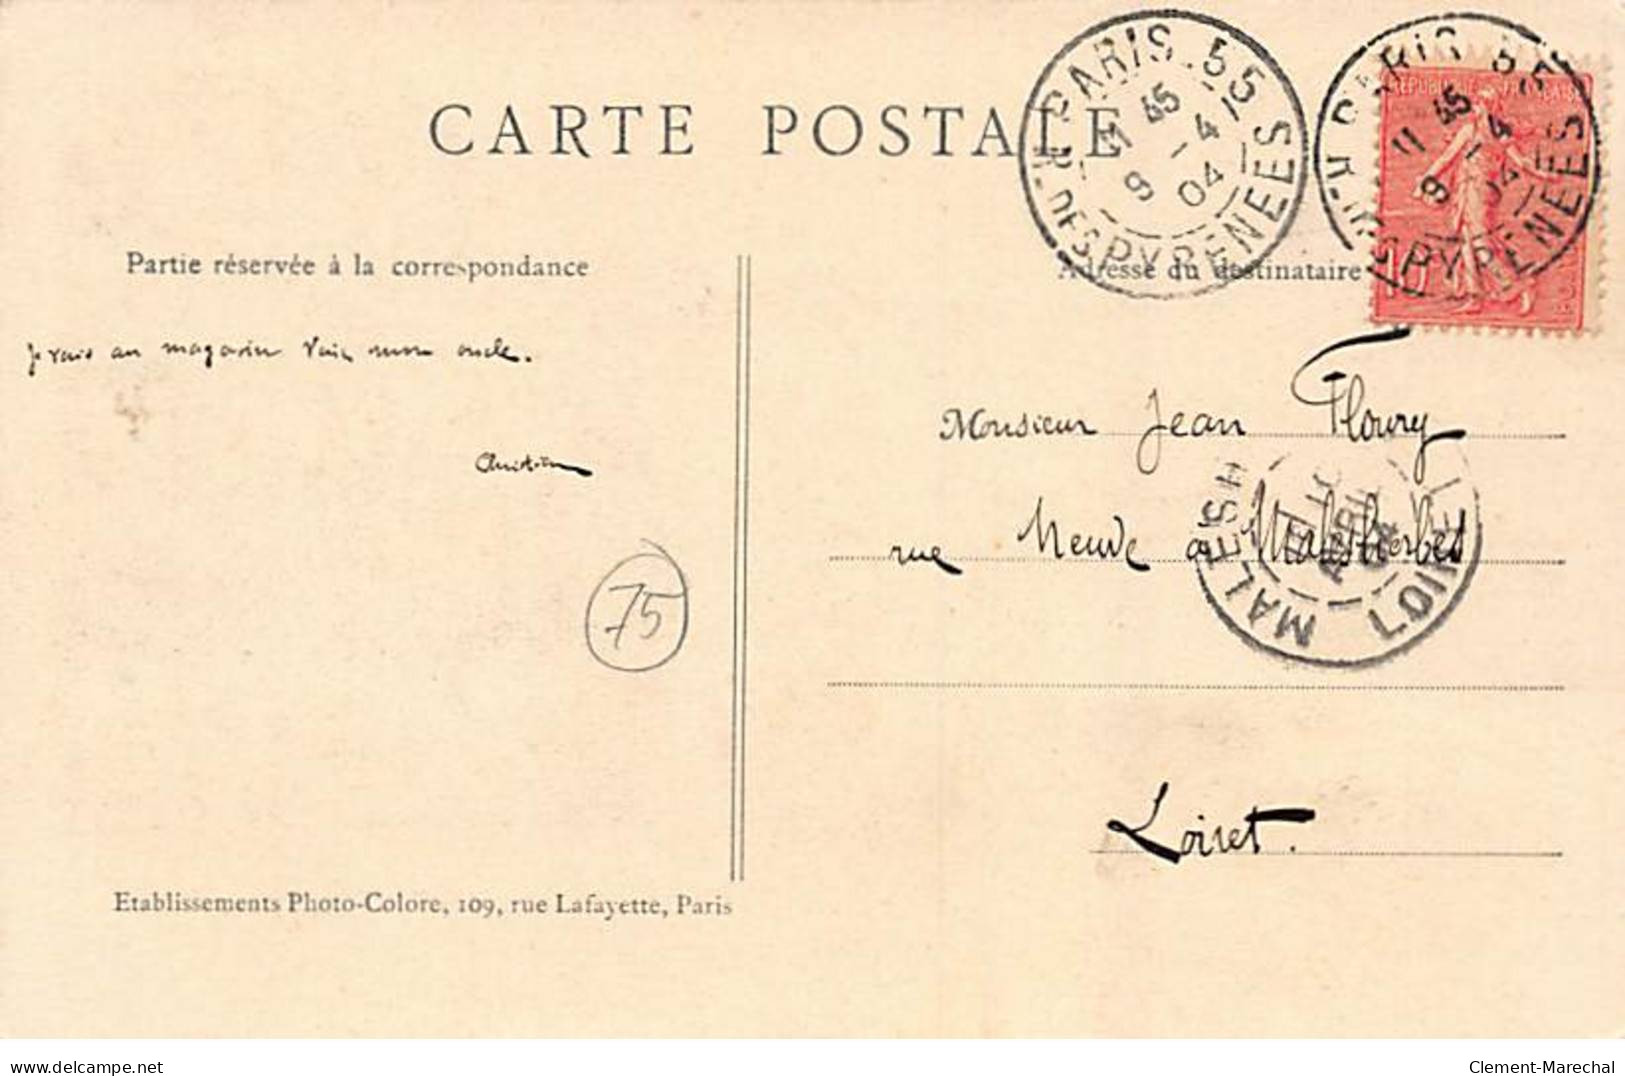 CARTE POSTALE
PARIS. 55
R. DES PYRENEES
11 45
9 -4
04
PARIS 55
R. DES PYRENEES
11 45
9 -4
04
REPUBLIQUE FRANÇAISE
10
Partie réservée à la correspondance
Adresse du destinataire
Je vais au magasin voir mon oncle.
Christian
75
Monsieur Jean Floury
rue Neuve à Malesherbes
MALESH
LOIRET
AVRIL
04
Loiret.
Etablissements Photo-Colore, 109, rue Lafayette, Paris
delcampe.net
Clement-Marechal